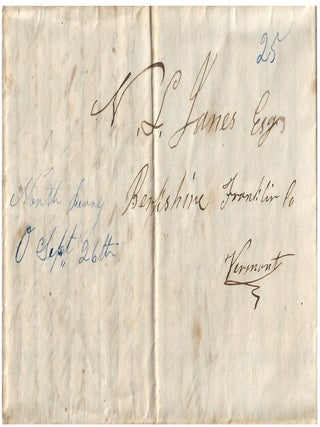 25
N. L. Janes Esq
Berkshire Franklin Co
Vermont
North
O Sept. 26th